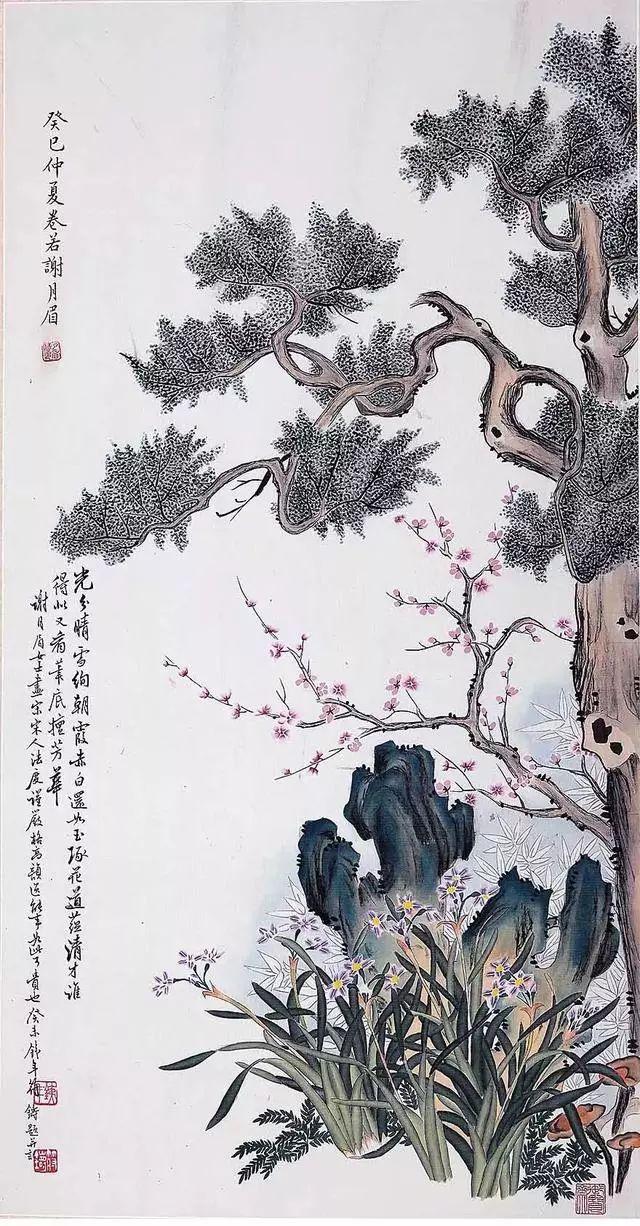 癸巳仲夏卷若謝月眉
光分晴雪絢朝霞赤白還如玉琢花道蕴清才誰
得似又看筆底擅芳華
謝月眉女士畫宗宋人法度謹嚴格高韻逸能事如此可貴也癸未新年題并記